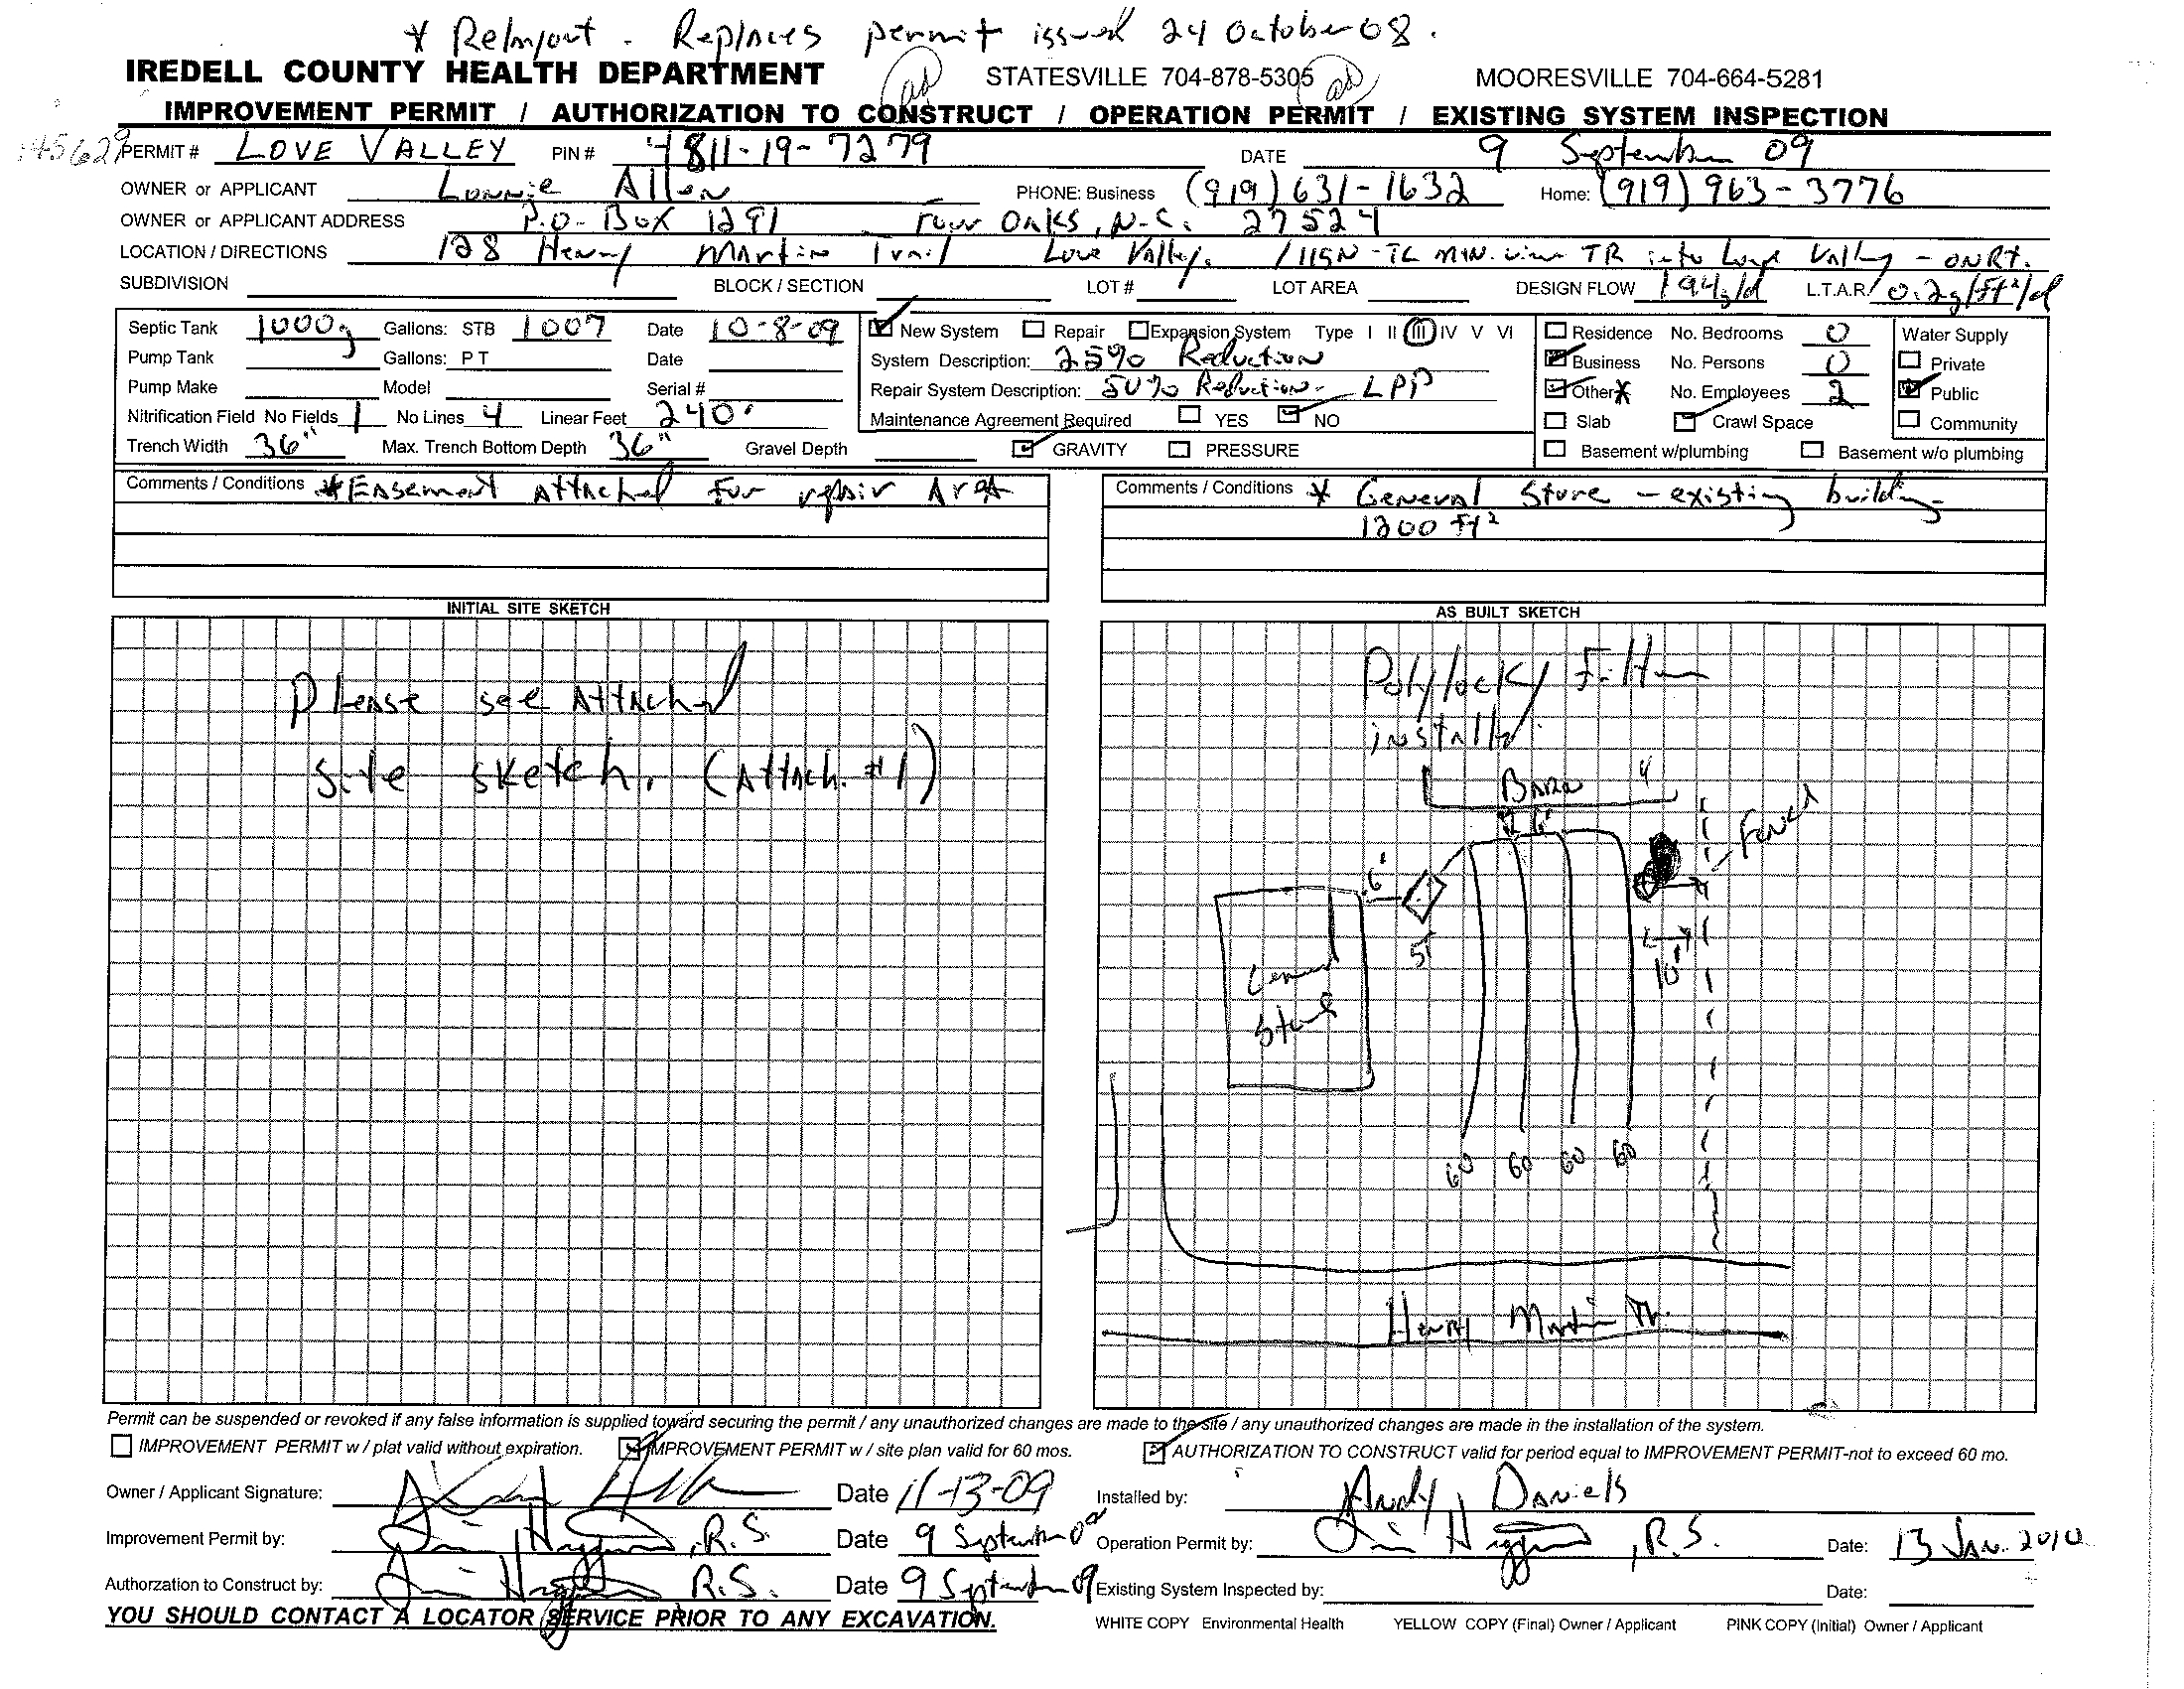 * Relayout - Replaces permit issued 24 October 08.
IREDELL COUNTY HEALTH DEPARTMENT STATESVILLE 704-878-5305 MOORESVILLE 704-664-5281
IMPROVEMENT PERMIT / AUTHORIZATION TO CONSTRUCT / OPERATION PERMIT / EXISTING SYSTEM INSPECTION
PERMIT # LOVE VALLEY PIN # 4811-19-7279 DATE 9 September 09
OWNER or APPLICANT Lonnie Allen PHONE: Business (919) 631-1632 Home: (919) 963-3776
OWNER or APPLICANT ADDRESS P.O. Box 1291 Four Oaks, N.C. 27524
LOCATION / DIRECTIONS 128 Henry Martin Trail Love Valley. / 115N - TL MTN. View TR into Love Valley - ON RT.
SUBDIVISION BLOCK / SECTION LOT # LOT AREA DESIGN FLOW 194g/d L.T.A.R. 0.2g/ft²/d
Septic Tank 1000g Gallons: STB 1007 Date 10-8-09 New System Repair Expansion System Type I II III IV V VI Residence No. Bedrooms 0 Water Supply
Pump Tank Gallons: P T Date System Description: 25% Reduction Business No. Persons 0 Private
Pump Make Model Serial # Repair System Description: 50% Reduction - LPP Other* No. Employees 2 Public
Nitrification Field No Fields 1 No Lines 4 Linear Feet 240' Maintenance Agreement Required YES NO Slab Crawl Space Community
Trench Width 36" Max. Trench Bottom Depth 36" Gravel Depth GRAVITY PRESSURE Basement w/plumbing Basement w/o plumbing
Comments / Conditions *Easement Attached for repair Area
Comments / Conditions * General Store - existing building
1200 ft²
INITIAL SITE SKETCH
Please see Attached
Site sketch. (Attach. #1)
AS BUILT SKETCH
Polylock Filter
installed.
Barn
6'
6'
Fence
5'
10'
General
Store
60 60 60 60
Henry Martin Tr.
Permit can be suspended or revoked if any false information is supplied toward securing the permit / any unauthorized changes are made to the site / any unauthorized changes are made in the installation of the system.
IMPROVEMENT PERMIT w / plat valid without expiration. IMPROVEMENT PERMIT w / site plan valid for 60 mos. AUTHORIZATION TO CONSTRUCT valid for period equal to IMPROVEMENT PERMIT-not to exceed 60 mo.
Owner / Applicant Signature: Date 11-13-09 Installed by: Andy Daniels
Improvement Permit by: , R.S. Date 9 September 09 Operation Permit by: , R.S. Date: 13 Jan. 2010
Authorzation to Construct by: R.S. Date 9 September 09 Existing System Inspected by: Date:
YOU SHOULD CONTACT A LOCATOR SERVICE PRIOR TO ANY EXCAVATION. WHITE COPY Environmental Health YELLOW COPY (Final) Owner / Applicant PINK COPY (Initial) Owner / Applicant